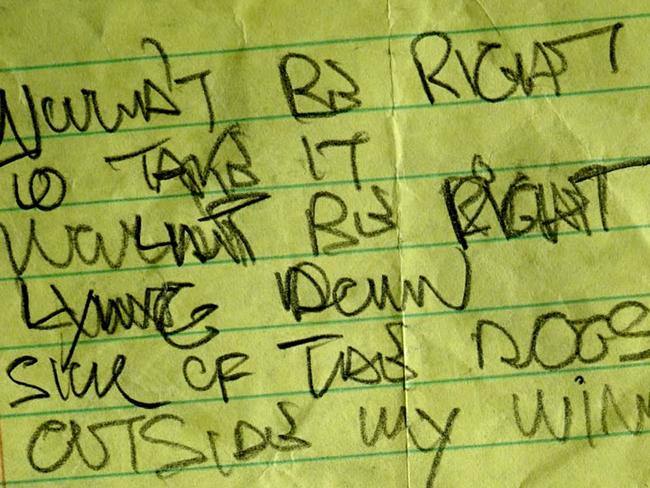 WOULDN'T BE RIGHT
TO TAKE IT
WOULDN'T BE RIGHT
LYING DOWN
SICK OF THE DOGS
OUTSIDE MY WIN